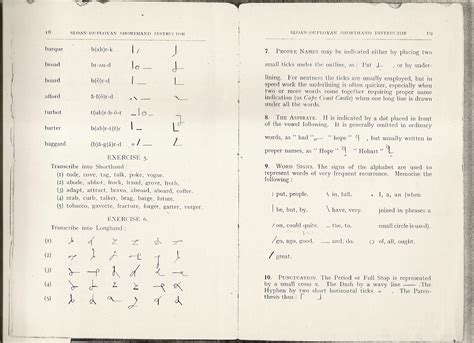 18 SLOAN-DUPLOYAN SHORTHAND INSTRUCTOR
barque b(ah)r-k
broad br-au-d
board b(ō)r-d
afford ă-f(ō)r-d
turbot t(ur)b-ŏ-t
barter b(ah)r-t(ĕ)r
haggard h(ă-g(ă)r-d
EXERCISE 5.
Transcribe into Shorthand :
(1) node, cove, tag, talk, poke, vogue.
(2) abode, abbot, frock, fraud, grove, froth.
(3) adapt, attract, bravo, abroad, aboard, coffer.
(4) crab, curb, talker, brag, barge, future.
(5) tobacco, gavotte, fracture, forger, garter, verger.
EXERCISE 6.
Transcribe into Longhand :
(1)
(2)
(3)
(4)
(5)
SLOAN-DUPLOYAN SHORTHAND INSTRUCTOR 19
7. PROPER NAMES may be indicated either by placing two
small ticks under the outline, as : Pat , or by under-
lining. For neatness the ticks are usually employed, but in
speed work the underlining is often quicker, especially when
two or more words come together requiring proper name
indication (as Cape Coast Castle) when one long line is drawn
under all the words.
8. THE ASPIRATE. H is indicated by a dot placed in front
of the vowel following. It is generally omitted in ordinary
words, as " had " " hope " , but usually written in
proper names, as " Hope " " Hobart "
9. WORD SIGNS. The signs of the alphabet are used to
represent words of very frequent recurrence. Memorise the
following :
put, people. in, fall. I, a, an (when
be, but, by. have, very. joined to phrases a
on, could quite. the, to. small circle is used).
go, ago, good. and, do of, all, ought.
great.
10. PUNCTUATION. The Period or Full Stop is represented
by a small cross x. The Dash by a wavy line The
Hyphen by two short horizontal ticks The Paren-
thesis thus :